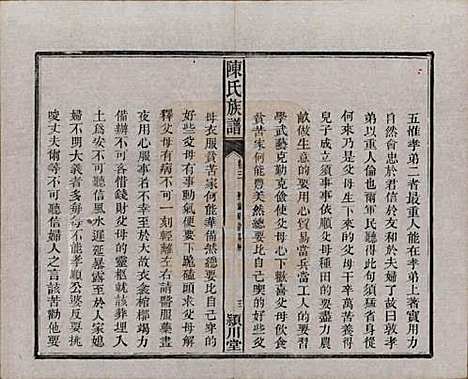 五惟孝弟二者最重人能在孝弟上著實用力
自然尙忠於君信於友和於夫婦了故曰敦孝
弟以重人倫也爾軍民聽得此句須猛省身從
何來乃是父母生下父母千辛萬苦養得
兒子成立須事事依順父母種田的要盡力農
畝做生意的要用心貿易當兵當工的要勤
學武藝克勤克儉使父母心下歡喜父母飮食
貧苦家何能豐美然總要比自己喫的好些父
陳氏族譜
三
潁川堂
母衣服貧苦家何能華備然總要比自己穿的
好些父母有事動氣便要下跪磕頭以求父母解
釋父母有病不可一刻輕離左右請醫服藥晝
夜用心服事若不幸至於大故衣衾棺槨竭力
備辦不可各惜錢財父母的靈柩就該葬埋入
土爲安不可聽信風水遲延暴露至於人家媳
婦不明大義者多每有不能孝順公婆反要挑
唆丈夫倘等不可聽信婦人之言該苦勸他要